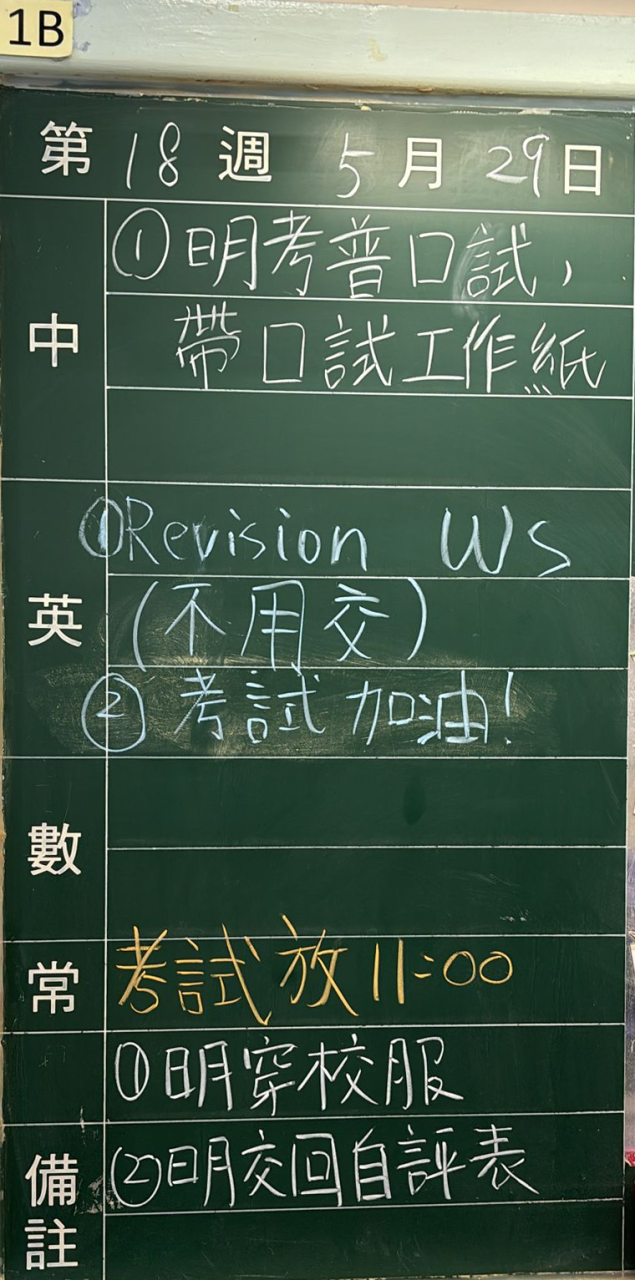 1B
第 18 週 5 月 29 日
中
①明考普口試，
帶口試工作紙
英
①Revision WS
(不用交)
②考試加油!
數
常
考試放11:00
①明穿校服
備註
②明交回自評表